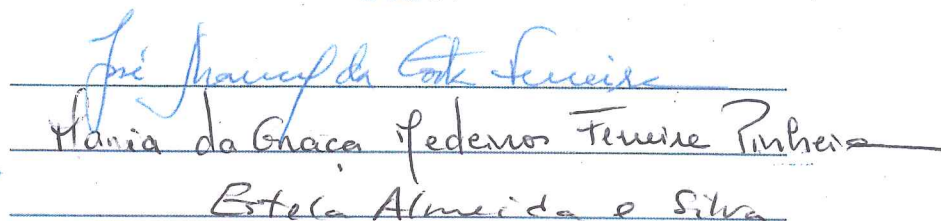 José Manuel da Costa Ferreira
Maria da Graça Medeiros Ferreira Pinheiro
Estela Almeida e Silva